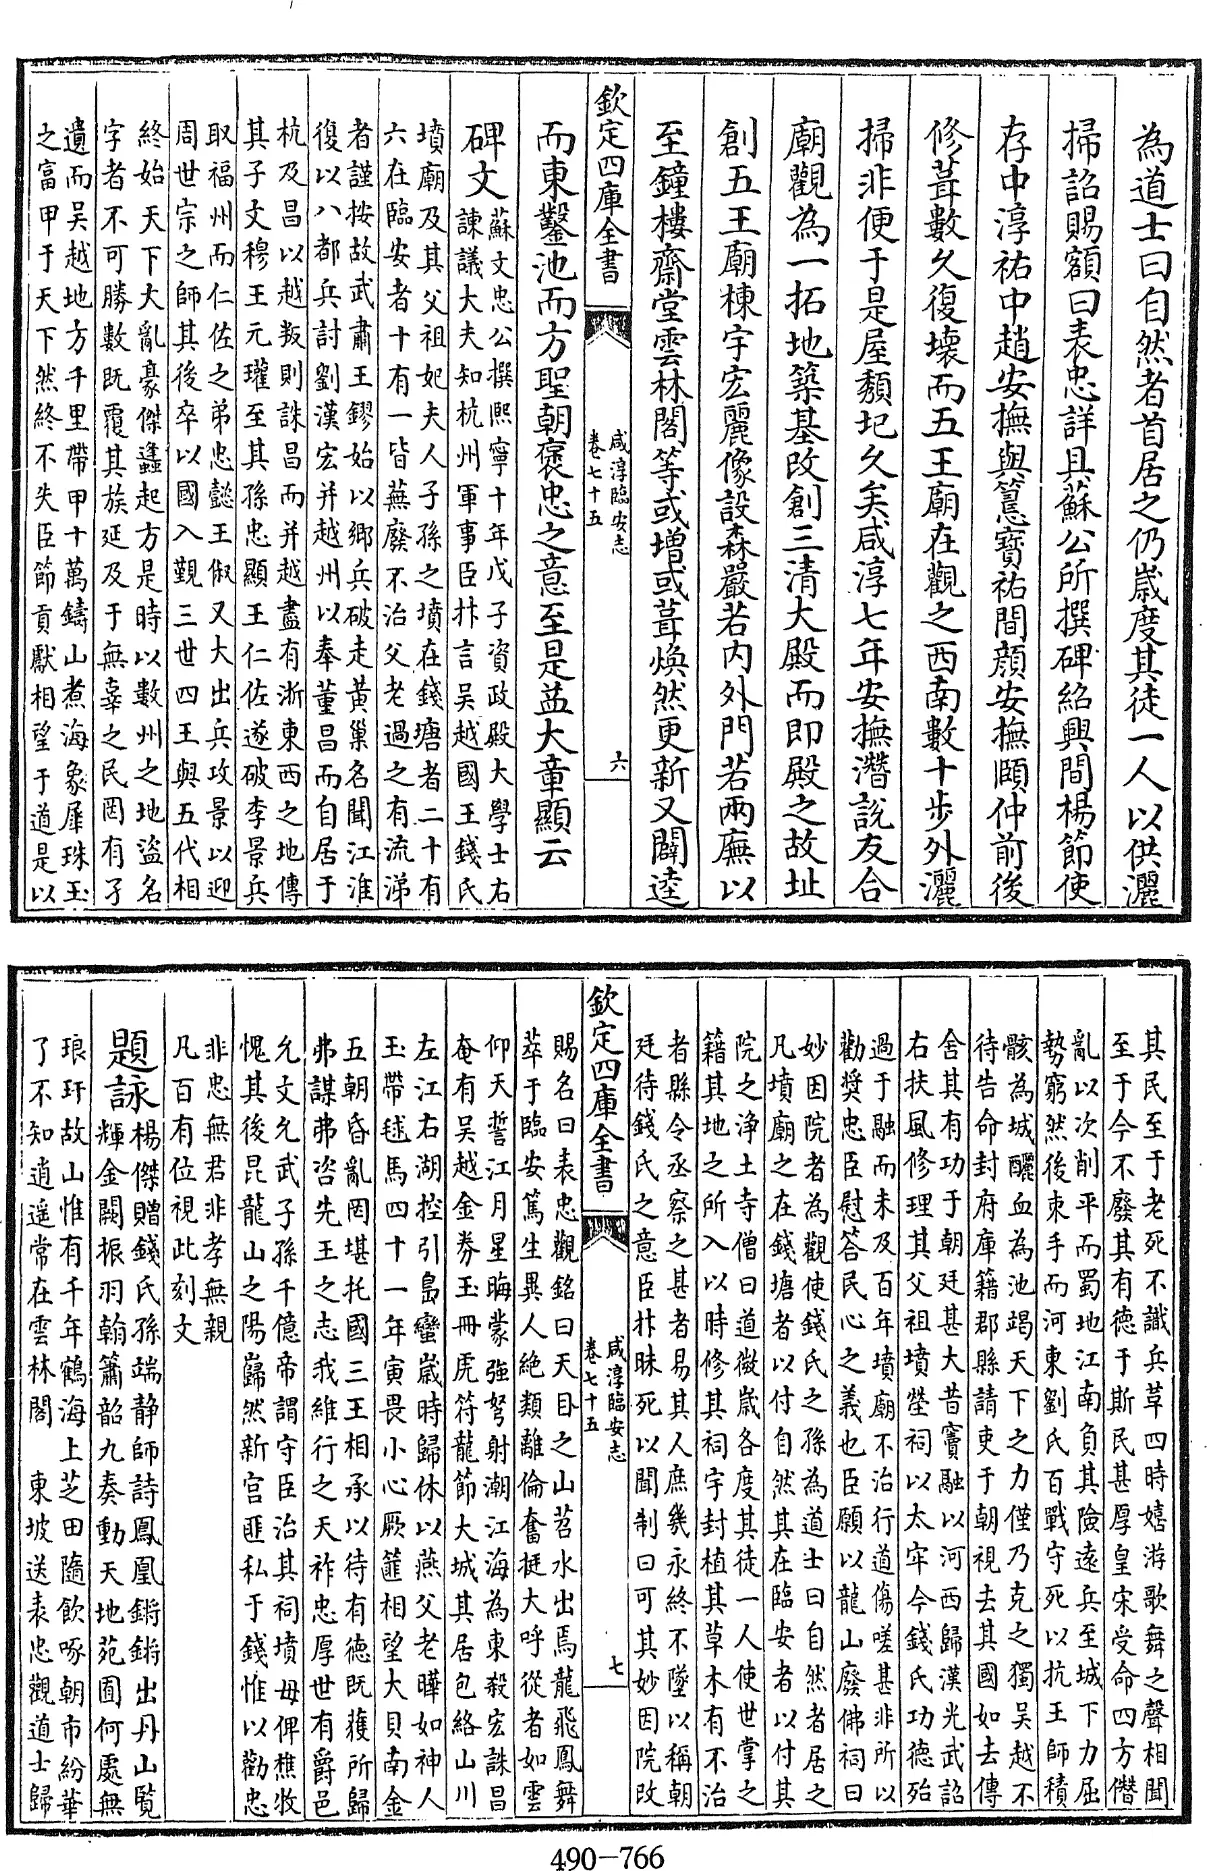 為道士曰自然者首居之仍歲度其徒一人以供灑
掃詔賜額曰表忠詳具蘇公所撰碑紹興間楊節使
存中淳祐中趙安撫與𥲅寳祐間顔安撫頤仲前後
修葺數久復壞而五王廟在觀之西南數十步外灑
掃非便于是屋頽圮久矣咸淳七年安撫潛說友合
廟觀為一拓地築基改創三清大殿而即殿之故址
創五王廟棟宇宏麗像設森嚴若内外門若兩廡以
至鐘樓齋堂雲林閣等或增或葺煥然更新又闢逵
欽定四庫全書
咸淳臨安志
卷七十五
六
而東鑿池而方聖朝褒忠之意至是益大章顯云
碑文
蘇文忠公撰熙寧十年戊子資政殿大學士右
諫議大夫知杭州軍事臣抃言吳越國王錢氏
墳廟及其父祖妃夫人子孫之墳在錢塘者二十有
六在臨安者十有一皆蕪廢不治父老過之有流涕
者謹按故武肅王鏐始以鄉兵破走黃巢名聞江淮
復以八都兵討劉漢宏并越州以奉董昌而自居于
杭及昌以越叛則誅昌而并越盡有浙東西之地傳
其子文穆王元瓘至其孫忠顯王仁佐遂破李景兵
取福州而仁佐之弟忠懿王俶又大出兵攻景以迎
周世宗之師其後卒以國入覲三世四王與五代相
終始天下大亂豪傑蠭起方是時以數州之地盜名
字者不可勝數既覆其族延及于無辜之民罔有孑
遺而吳越地方千里帶甲十萬鑄山煮海象犀珠玉
之富甲于天下然終不失臣節貢獻相望于道是以
其民至于老死不識兵革四時嬉游歌舞之聲相聞
至于今不廢其有德于斯民甚厚皇宋受命四方僭
亂以次削平而蜀地江南負其險遠兵至城下力屈
勢窮然後束手而河東劉氏百戰守死以抗王師積
骸為城釃血為池竭天下之力僅乃克之獨吳越不
待告命封府庫籍郡縣請吏于朝視去其國如去傳
舍其有功于朝廷甚大昔竇融以河西歸漢光武詔
右扶風修理其父祖墳塋祠以太牢今錢氏功德殆
過于融而未及百年墳廟不治行道傷嗟甚非所以
勸奬忠臣慰答民心之義也臣願以龍山廢佛祠曰
妙因院者為觀使錢氏之孫為道士曰自然者居之
凡墳廟之在錢塘者以付自然其在臨安者以付其
院之淨土寺僧曰道微歲各度其徒一人使世掌之
籍其地之所入以時修其祠宇封植其草木有不治
者縣令丞察之甚者易其人庶幾永終不墜以稱朝
廷待錢氏之意臣抃昧死以聞制曰可其妙因院改
欽定四庫全書
咸淳臨安志
卷七十五
七
賜名曰表忠觀銘曰天目之山苕水出焉龍飛鳳舞
萃于臨安篤生異人絶類離倫奮挺大呼從者如雲
仰天誓江月星晦蒙強弩射潮江海為東殺宏誅昌
奄有吳越金劵玉冊虎符龍節大城其居包絡山川
左江右湖控引島蠻歲時歸休以燕父老曄如神人
玉帶毬馬四十一年寅畏小心厥篚相望大貝南金
五朝昏亂罔堪托國三王相承以待有德既獲所歸
弗謀弗咨先王之志我維行之天祚忠厚世有爵邑
允文允武子孫千億帝謂守臣治其祠墳毋俾樵牧
愧其後昆龍山之陽巋然新宫匪私于錢惟以勸忠
非忠無君非孝無親
凡百有位視此刻文
題詠
楊傑贈錢氏孫端静師詩鳳凰鏘鏘出丹山覽
輝金闕振羽翰簫韶九奏動天地苑囿何處無
琅玕故山惟有千年鶴海上芝田隨飲啄朝市紛華
了不知逍遥常在雲林閣　東坡送表忠觀道士歸
490-766